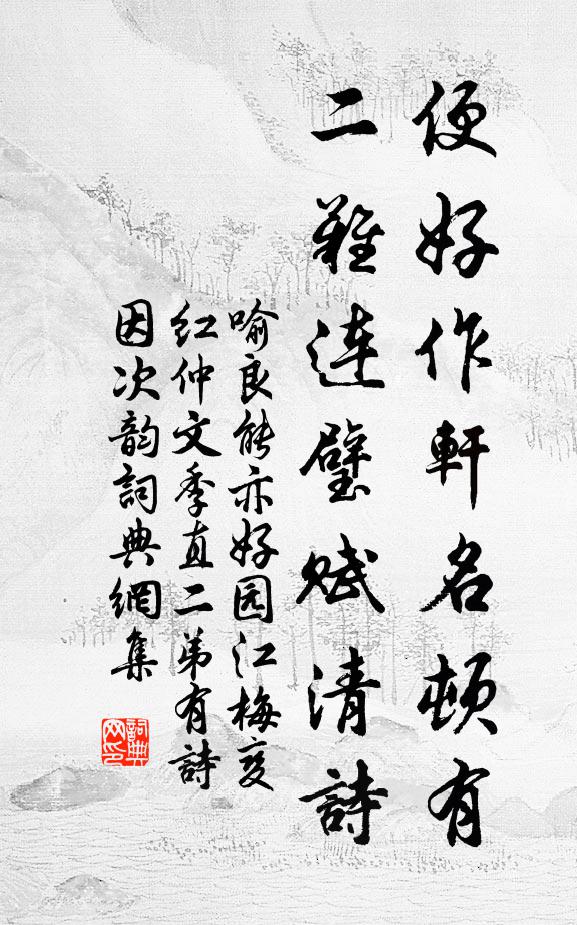 便好作軒名頓有
二難連璧賦清詩
喻良能亦好园江梅变
红仲文季直二弟有詩
因次韵詞典網集
詞典网印